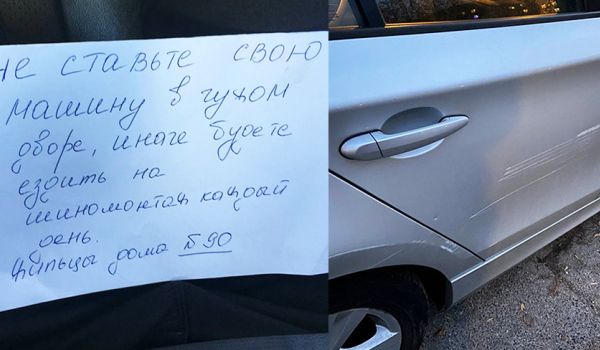 не ставьте свою
машину в чужом
дворе, иначе будете
ездить на
шиномонтаж каждый
день.
Жильцы дома Б90